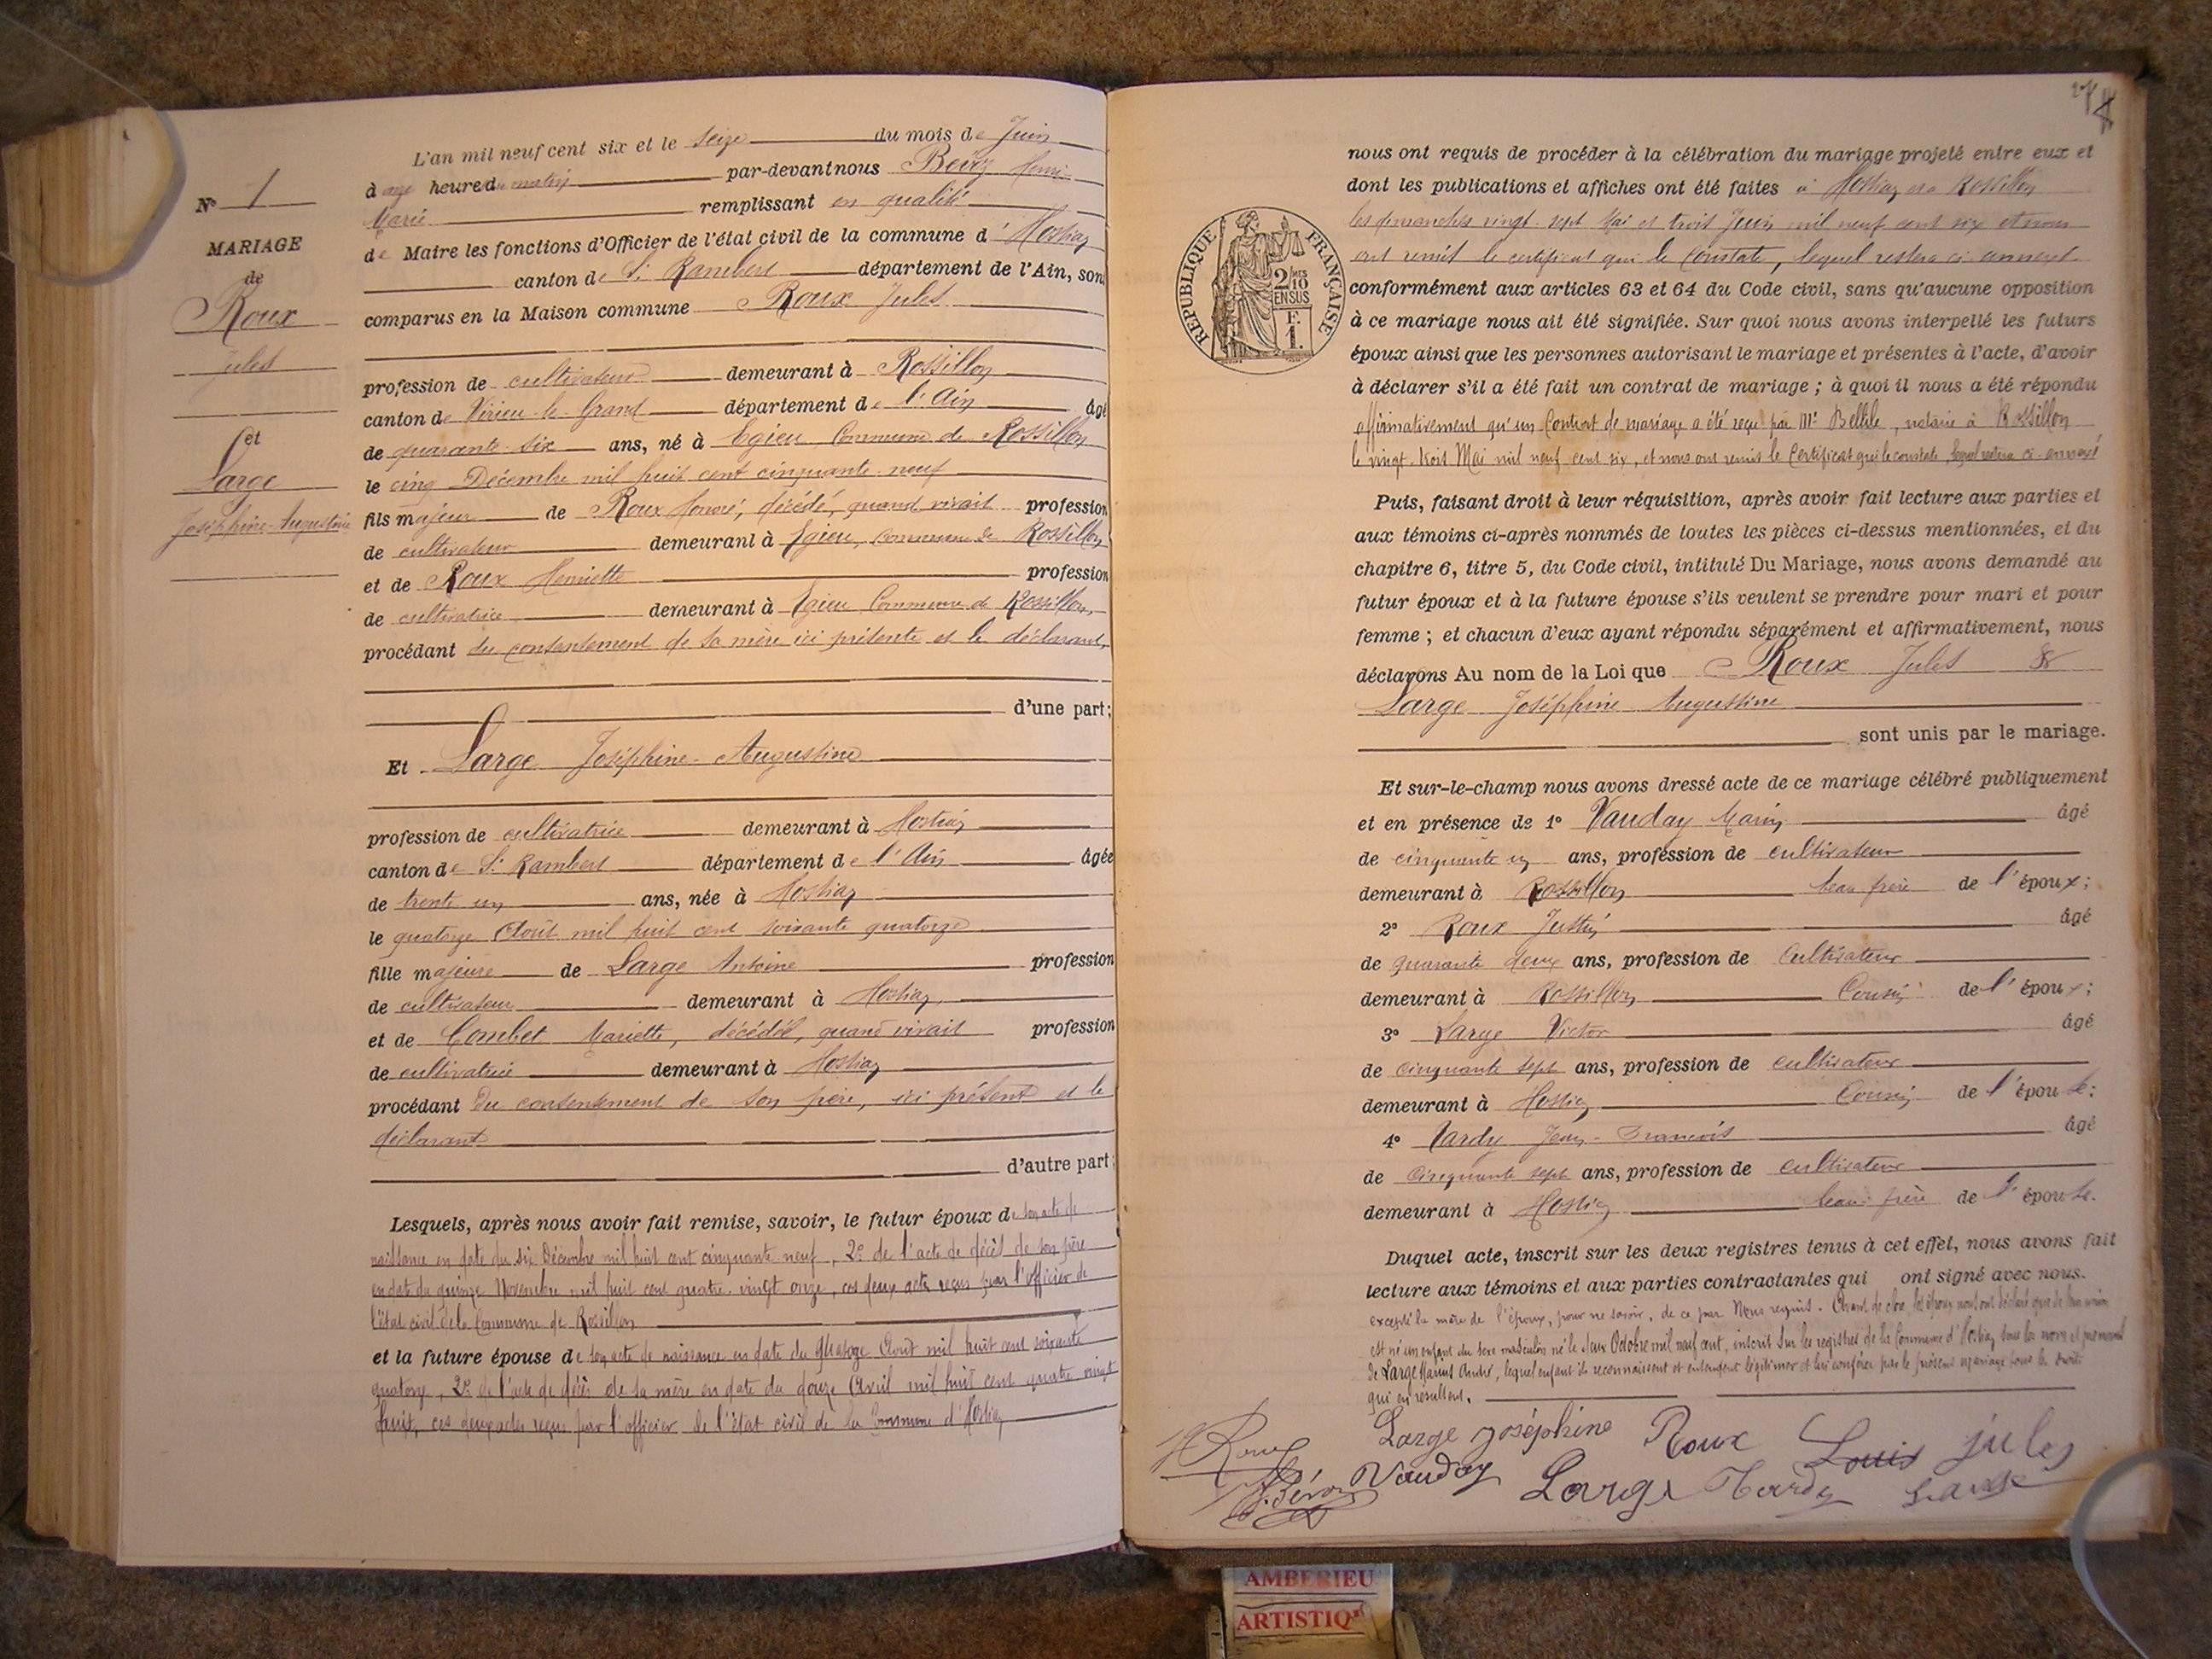 N° 1
MARIAGE
de
Roux
Jules
et
Large
Joséphine-Augustine
L'an mil neuf cent six et le seize du mois de Juin
à onze heure du matin par-devant nous
Marie remplissant en qualité
de Maire les fonctions d'Officier de l'état civil de la commune d'Hostiaz
canton de St Rambert département de l'Ain, sont
comparus en la Maison commune Roux Jules
profession de cultivateur demeurant à Rossillon
canton de Virieu-le-Grand département de l'Ain âgé
de quarante-six ans, né à Egieu Commune de Rossillon
le cinq Décembre mil huit cent cinquante-neuf
fils majeur de Roux Honoré, décédé, quand vivait profession
de cultivateur demeurant à Egieu, commune de Rossillon
et de Roux Henriette profession
de cultivatrice demeurant à Egieu Commune de Rossillon,
procédant du consentement de sa mère ici présente et le déclarant,
d'une part;
Et Large Joséphine-Augustine
profession de cultivatrice demeurant à Hostiaz
canton de St Rambert département de l'Ain âgée
de trente un ans, née à Hostiaz
le quatorze Août mil huit cent soixante quatorze
fille majeure de Large Antoine profession
de cultivateur demeurant à Hostiaz,
et de Combet Mariette, décédée, quand vivait profession
de cultivatrice demeurant à Hostiaz
procédant du consentement de son père, ici présent et le
déclarant
d'autre part;
Lesquels, après nous avoir fait remise, savoir, le futur époux de son acte de
naissance en date du six Décembre mil huit cent cinquante neuf, 2° de l'acte de décès de son père
en date du quinze Novembre mil huit cent quatre-vingt onze, ces deux actes reçus par l'officier de
l'état civil de la Commune de Rossillon
et la future épouse de son acte de naissance en date du quatorze Août mil huit cent soixante
quatorze, 2° de l'acte de décès de sa mère en date du douze Avril mil huit cent quatre vingt
huit, ces deux actes reçus par l'officier de l'état civil de la Commune d'Hostiaz
nous ont requis de procéder à la célébration du mariage projeté entre eux et
dont les publications et affiches ont été faites à Hostiaz et à Rossillon
les dimanches vingt-sept Mai et trois Juin mil neuf cent six et nous
ont remis le certificat qui le constate, lequel restera ci-annexé
conformément aux articles 63 et 64 du Code civil, sans qu'aucune opposition
à ce mariage nous ait été signifiée. Sur quoi nous avons interpellé les futurs
époux ainsi que les personnes autorisant le mariage et présentes à l'acte, d'avoir
à déclarer s'il a été fait un contrat de mariage; à quoi il nous a été répondu
affirmativement qu'un Contrat de mariage a été reçu par Me Bellile, notaire à Rossillon
le vingt-trois Mai mil neuf cent six, et nous ont remis le Certificat qui le constate, lequel restera ci-annexé
Puis, faisant droit à leur réquisition, après avoir fait lecture aux parties et
aux témoins ci-après nommés de toutes les pièces ci-dessus mentionnées, et du
chapitre 6, titre 5, du Code civil, intitulé Du Mariage, nous avons demandé au
futur époux et à la future épouse s'ils veulent se prendre pour mari et pour
femme; et chacun d'eux ayant répondu séparément et affirmativement, nous
déclarons Au nom de la Loi que Roux Jules &
Large Joséphine Augustine
sont unis par le mariage.
Et sur-le-champ nous avons dressé acte de ce mariage célébré publiquement
et en présence de 1° Vauday Marin âgé
de cinquante un ans, profession de cultivateur
demeurant à Rossillon beau frère de l'époux;
2° Roux Justin âgé
de quarante deux ans, profession de cultivateur
demeurant à Rossillon Cousin de l'époux;
3° Large Victor âgé
de cinquante sept ans, profession de cultivateur
demeurant à Hostiaz Cousin de l'épouse;
4° Tardy Jean-François âgé
de cinquante sept ans, profession de cultivateur
demeurant à Hostiaz beau-frère de l'épouse.
Duquel acte, inscrit sur les deux registres tenus à cet effet, nous avons fait
lecture aux témoins et aux parties contractantes qui ont signé avec nous.
excepté la mère de l'époux, pour ne savoir, de ce par Nous requis. Avant de clore, les époux nous ont déclaré que de leur union
est né un enfant du sexe masculin né le deux Octobre mil neuf cent, inscrit sur les registres de la Commune d'Hostiaz sous les nom et prénoms
de Large Marius André, lequel enfant ils reconnaissent et entendent légitimer et lui conférer par le présent mariage tous les droits
qui en résultent.
Large Joséphine Roux Louis jules
Vauday Large Tardy Large
RÉPUBLIQUE FRANÇAISE
2/10 MES
EN SUS
F.
1.
AMBERIEU
ARTISTIQ